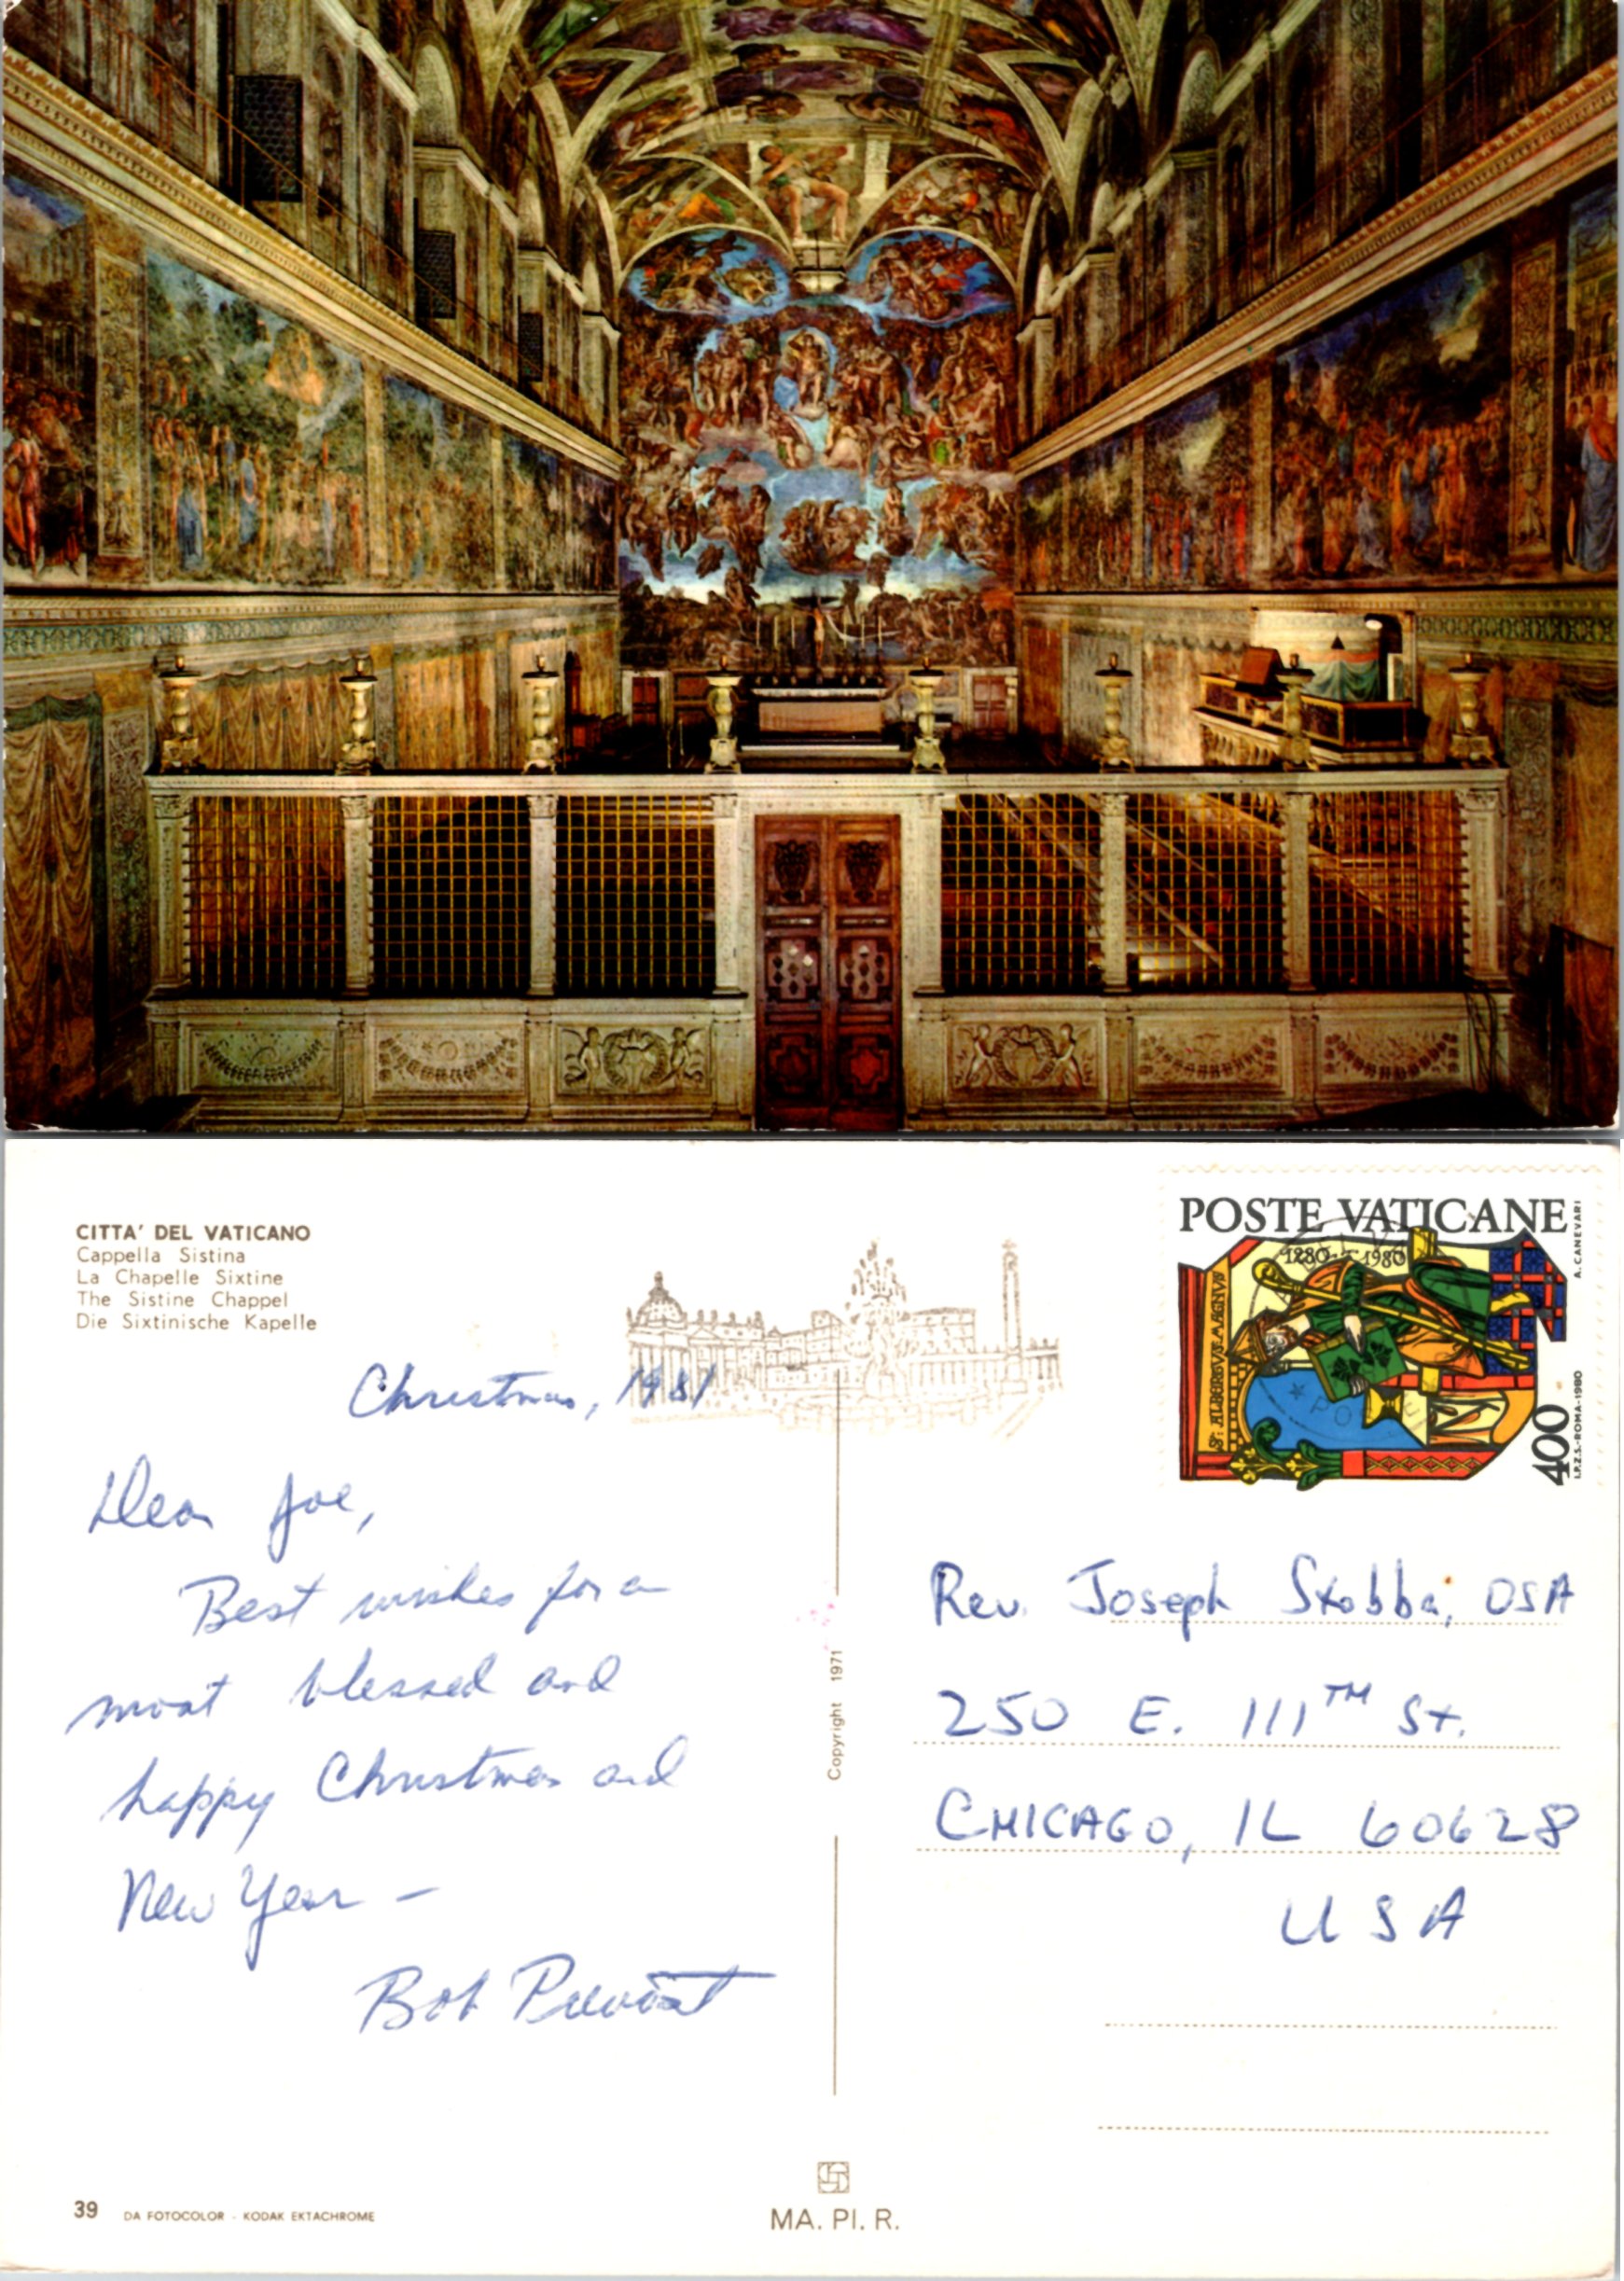 CITTA' DEL VATICANO
Cappella Sistina
La Chapelle Sixtine
The Sistine Chappel
Die Sixtinische Kapelle
Christmas, 1981
Dear Joe,
Best wishes for a
most blessed and
happy Christmas and
New Year –
Bob Prevost
39 DA FOTOCOLOR - KODAK EKTACHROME
Copyright 1971
MA. PI. R.
POSTE VATICANE
1280 - 1980
S: ALBERTVS MAGNVS
A. CANEVARI
400
I.P.Z.S.-ROMA-1980
Rev. Joseph Stobba, OSA
250 E. 111TH St.
CHICAGO, IL 60628
USA